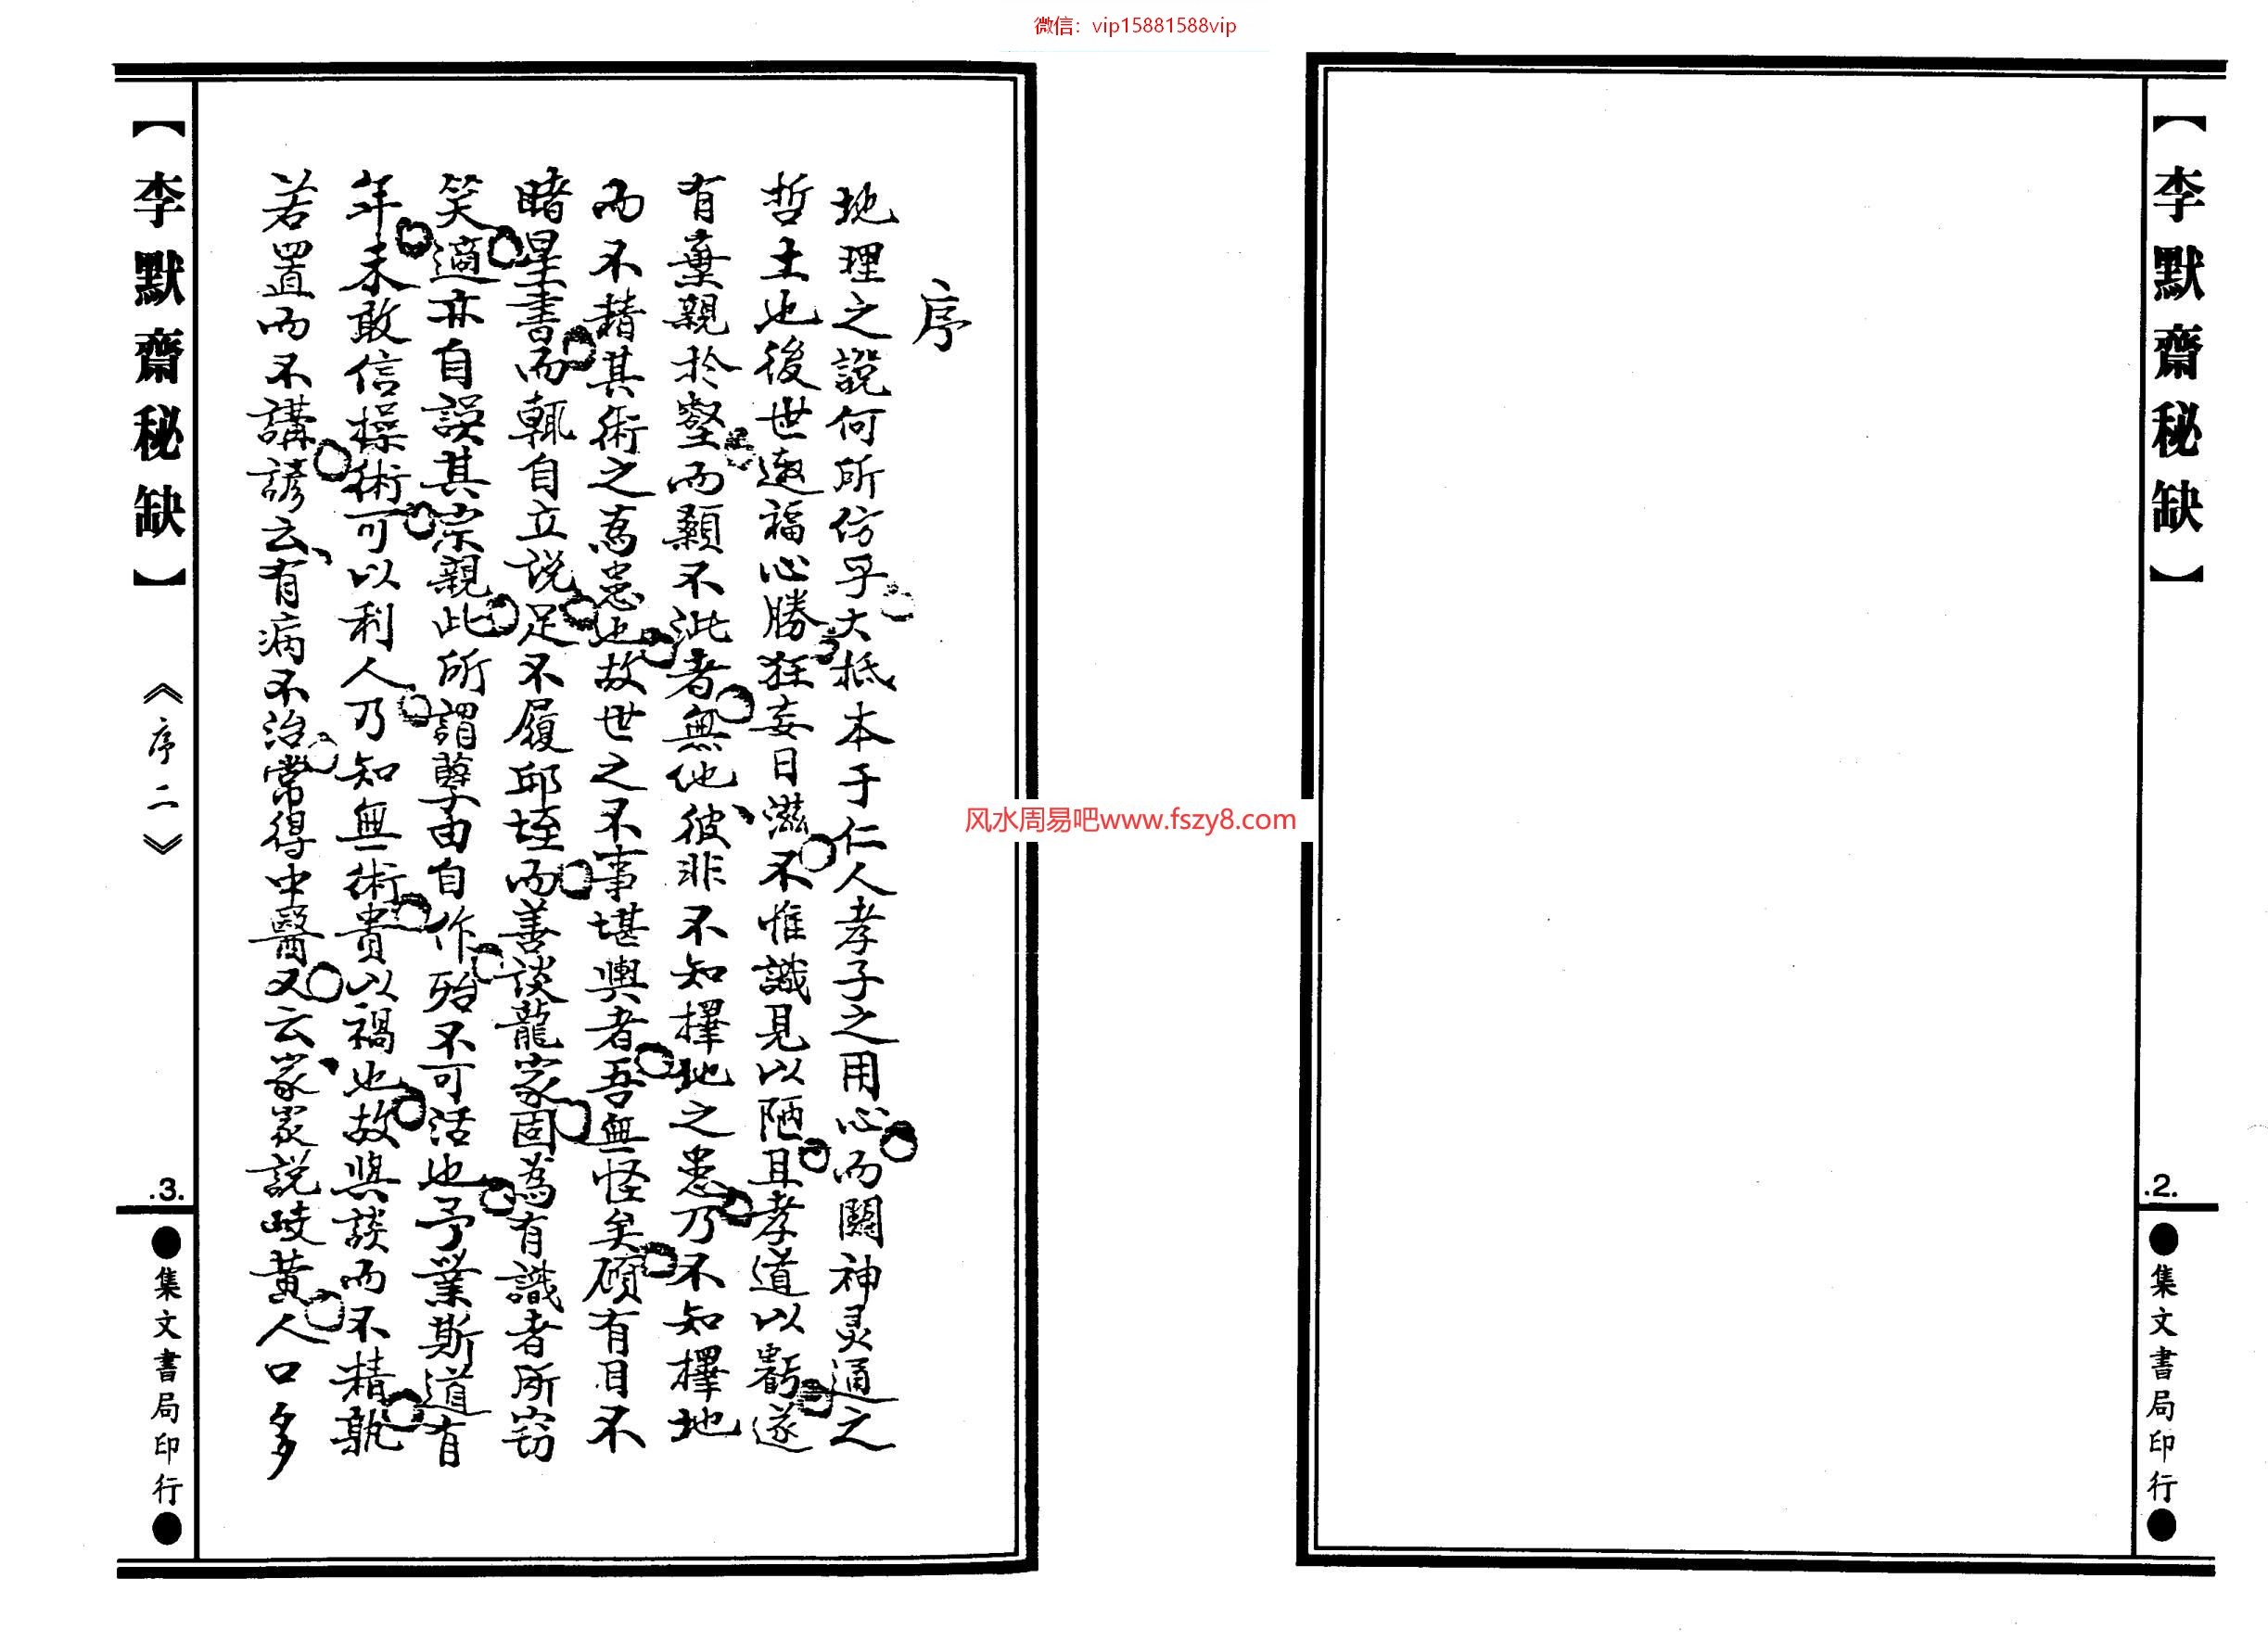 微信：vip15881588vip
【李默齋秘缺】
.2.
●集文書局印行●
风水周易吧www.fszy8.com
序
地理之說何所仿乎大抵本于仁人孝子之用心而關神灵通之
哲士也後世邀福心勝狂妄日滋不惟識見以陋且孝道以虧遂
有棄親於壑而顙不泚者無他彼非不知擇地之患乃不知擇地
而不精其術之為患也故世之不事堪輿者吾無怪矣碩有目不
睹星書而輒自立说足不履邱垤而善谈龍家固為有識者所窃
笑適亦自誤其宗親此所謂孽由自作殆不可活也予業斯道有
年未敢信操術可以利人乃知無術貴以禍也故與談而不精孰
若置而不講諺云有病不治常得中醫又云家家説岐黃人口多
【李默齋秘缺】
《序二》
.3.
●集文書局印行●